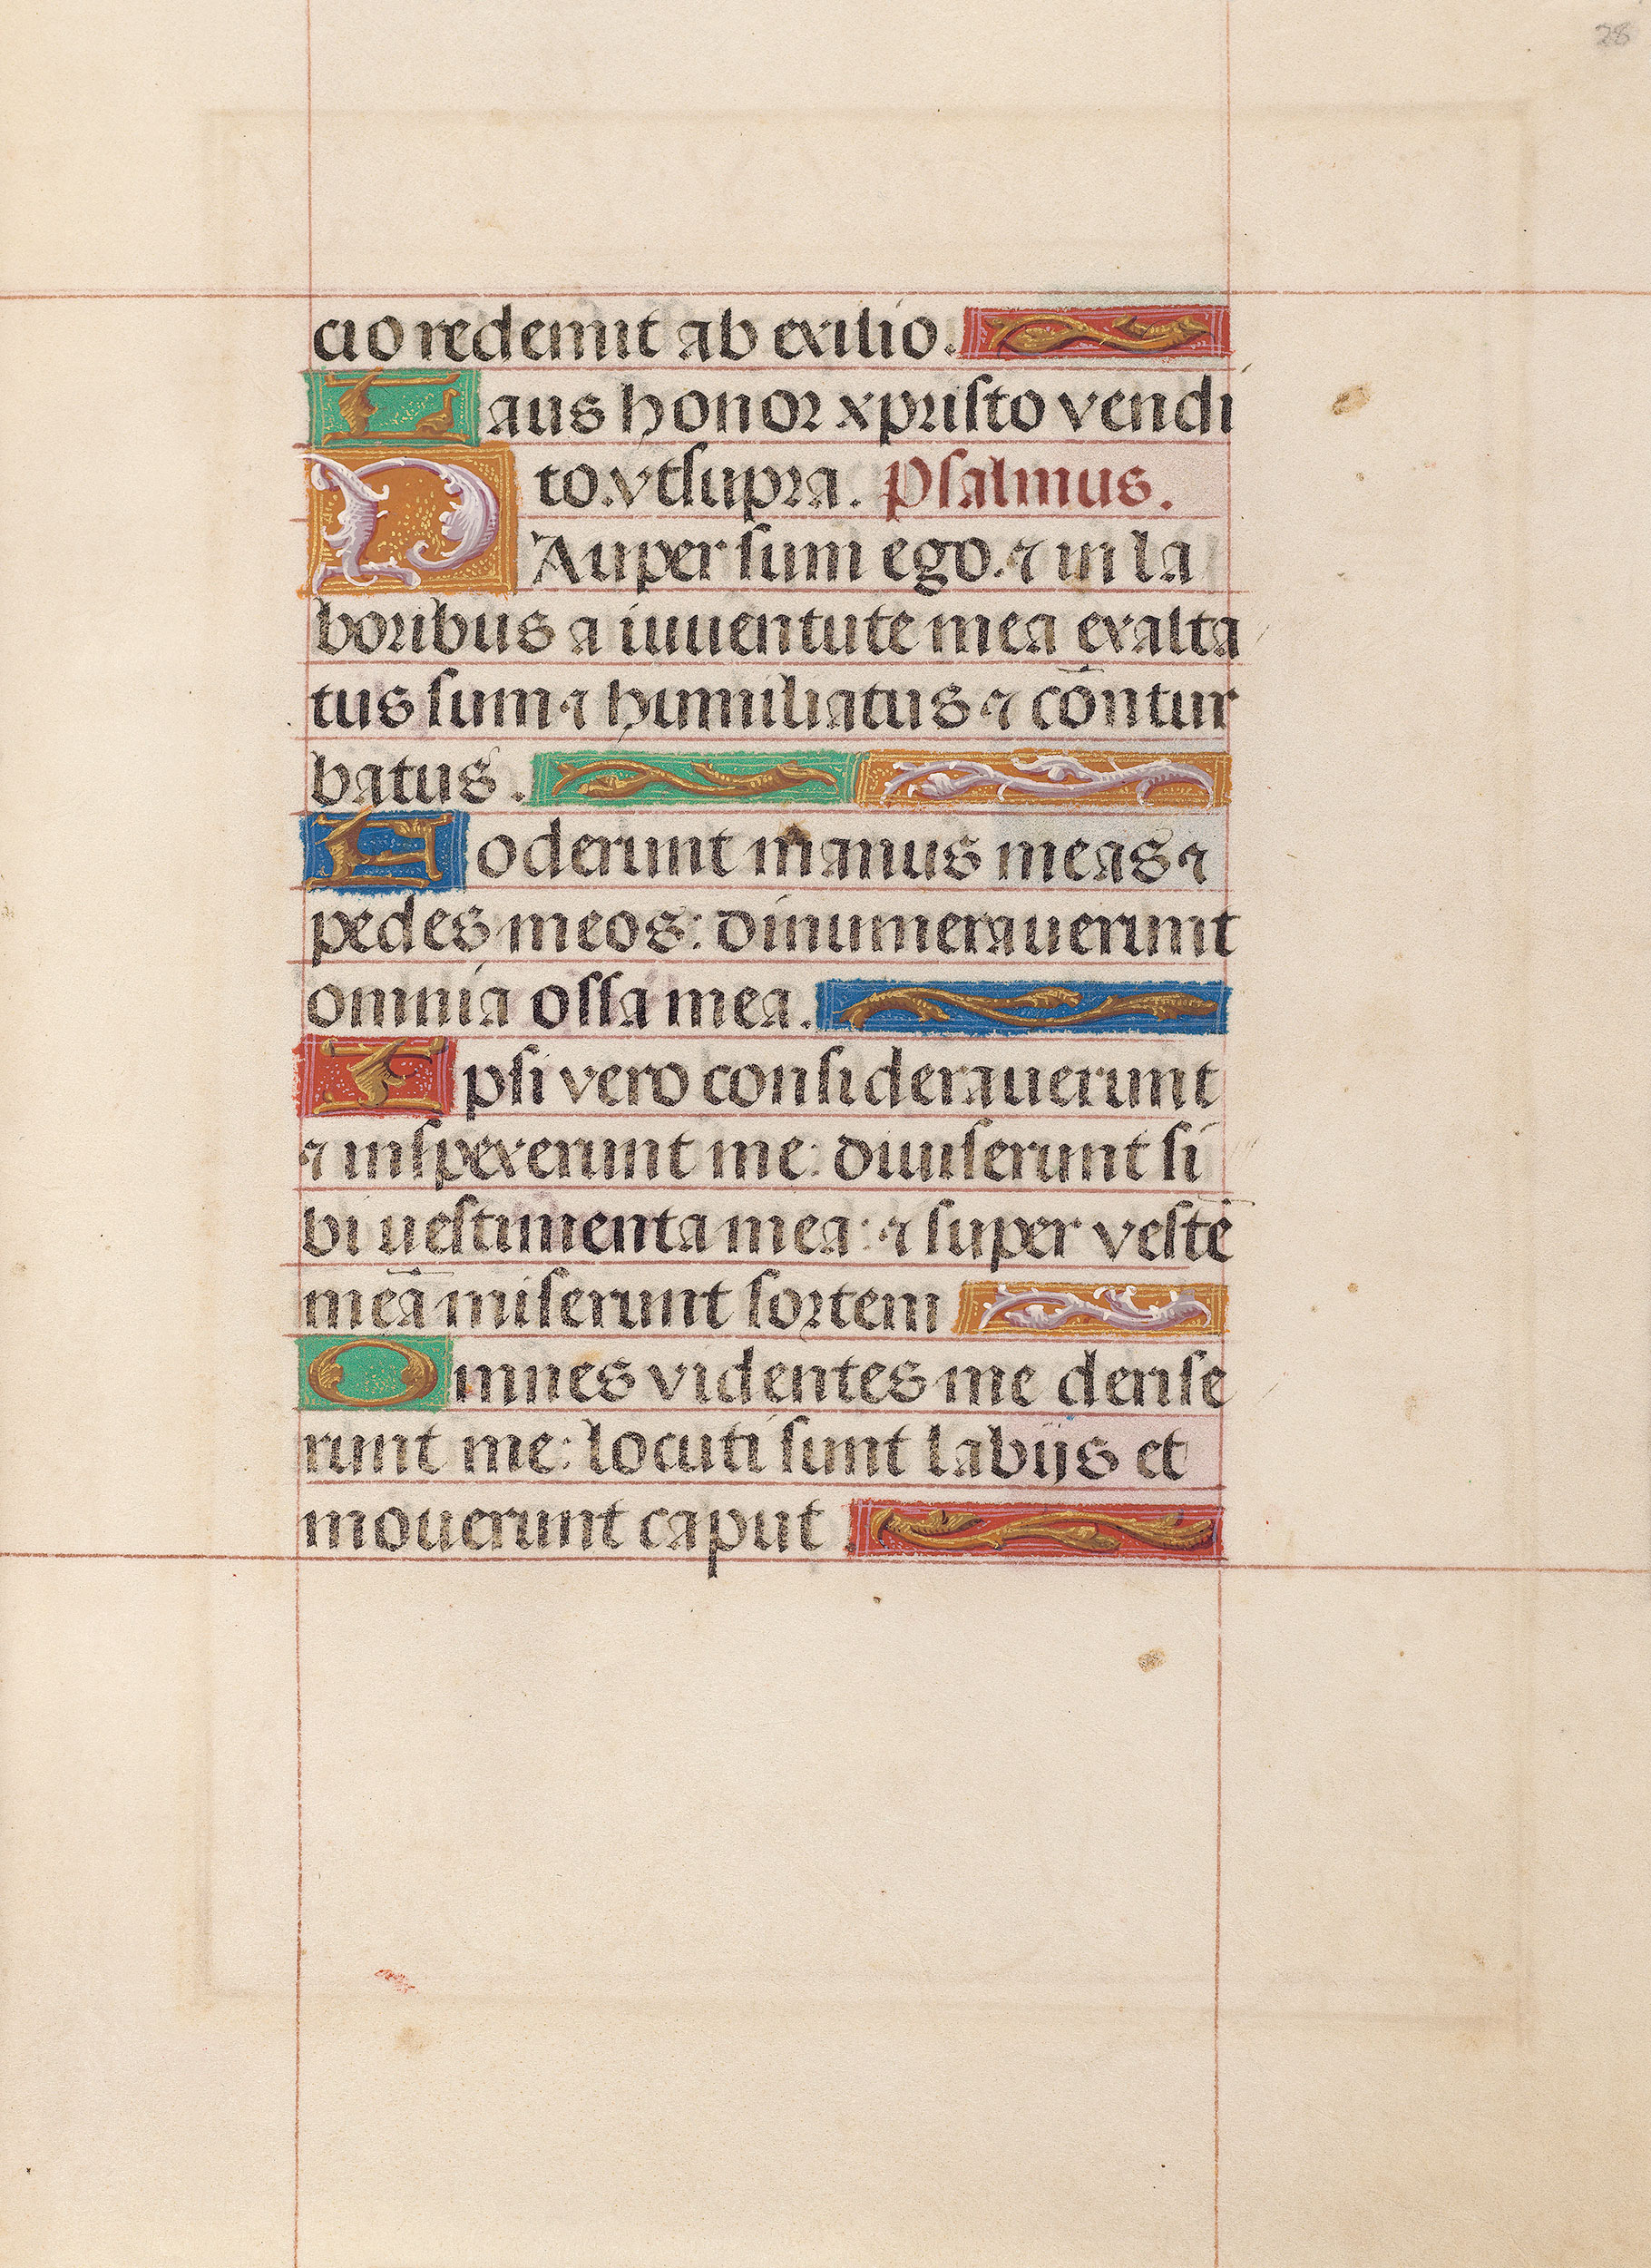 28
cio redemit ab exilio.
Laus honor xpristo vendi
to. vtsupra. Psalmus.
PAuper sum ego. ⁊ in la
boribus a iuuentute mea exalta
tus sum ⁊ humiliatus ⁊ cōntur
batus.
Foderunt manus meas ⁊
pedes meos: dinumerauerunt
omnia ossa mea.
Ipsi vero considerauerunt
⁊ inspexerunt me: diuiserunt si
bi uestimenta mea: ⁊ super vestē
meā miserunt sortem
Omnes videntes me derise
runt me: locuti sunt labijs et
mouerunt caput.